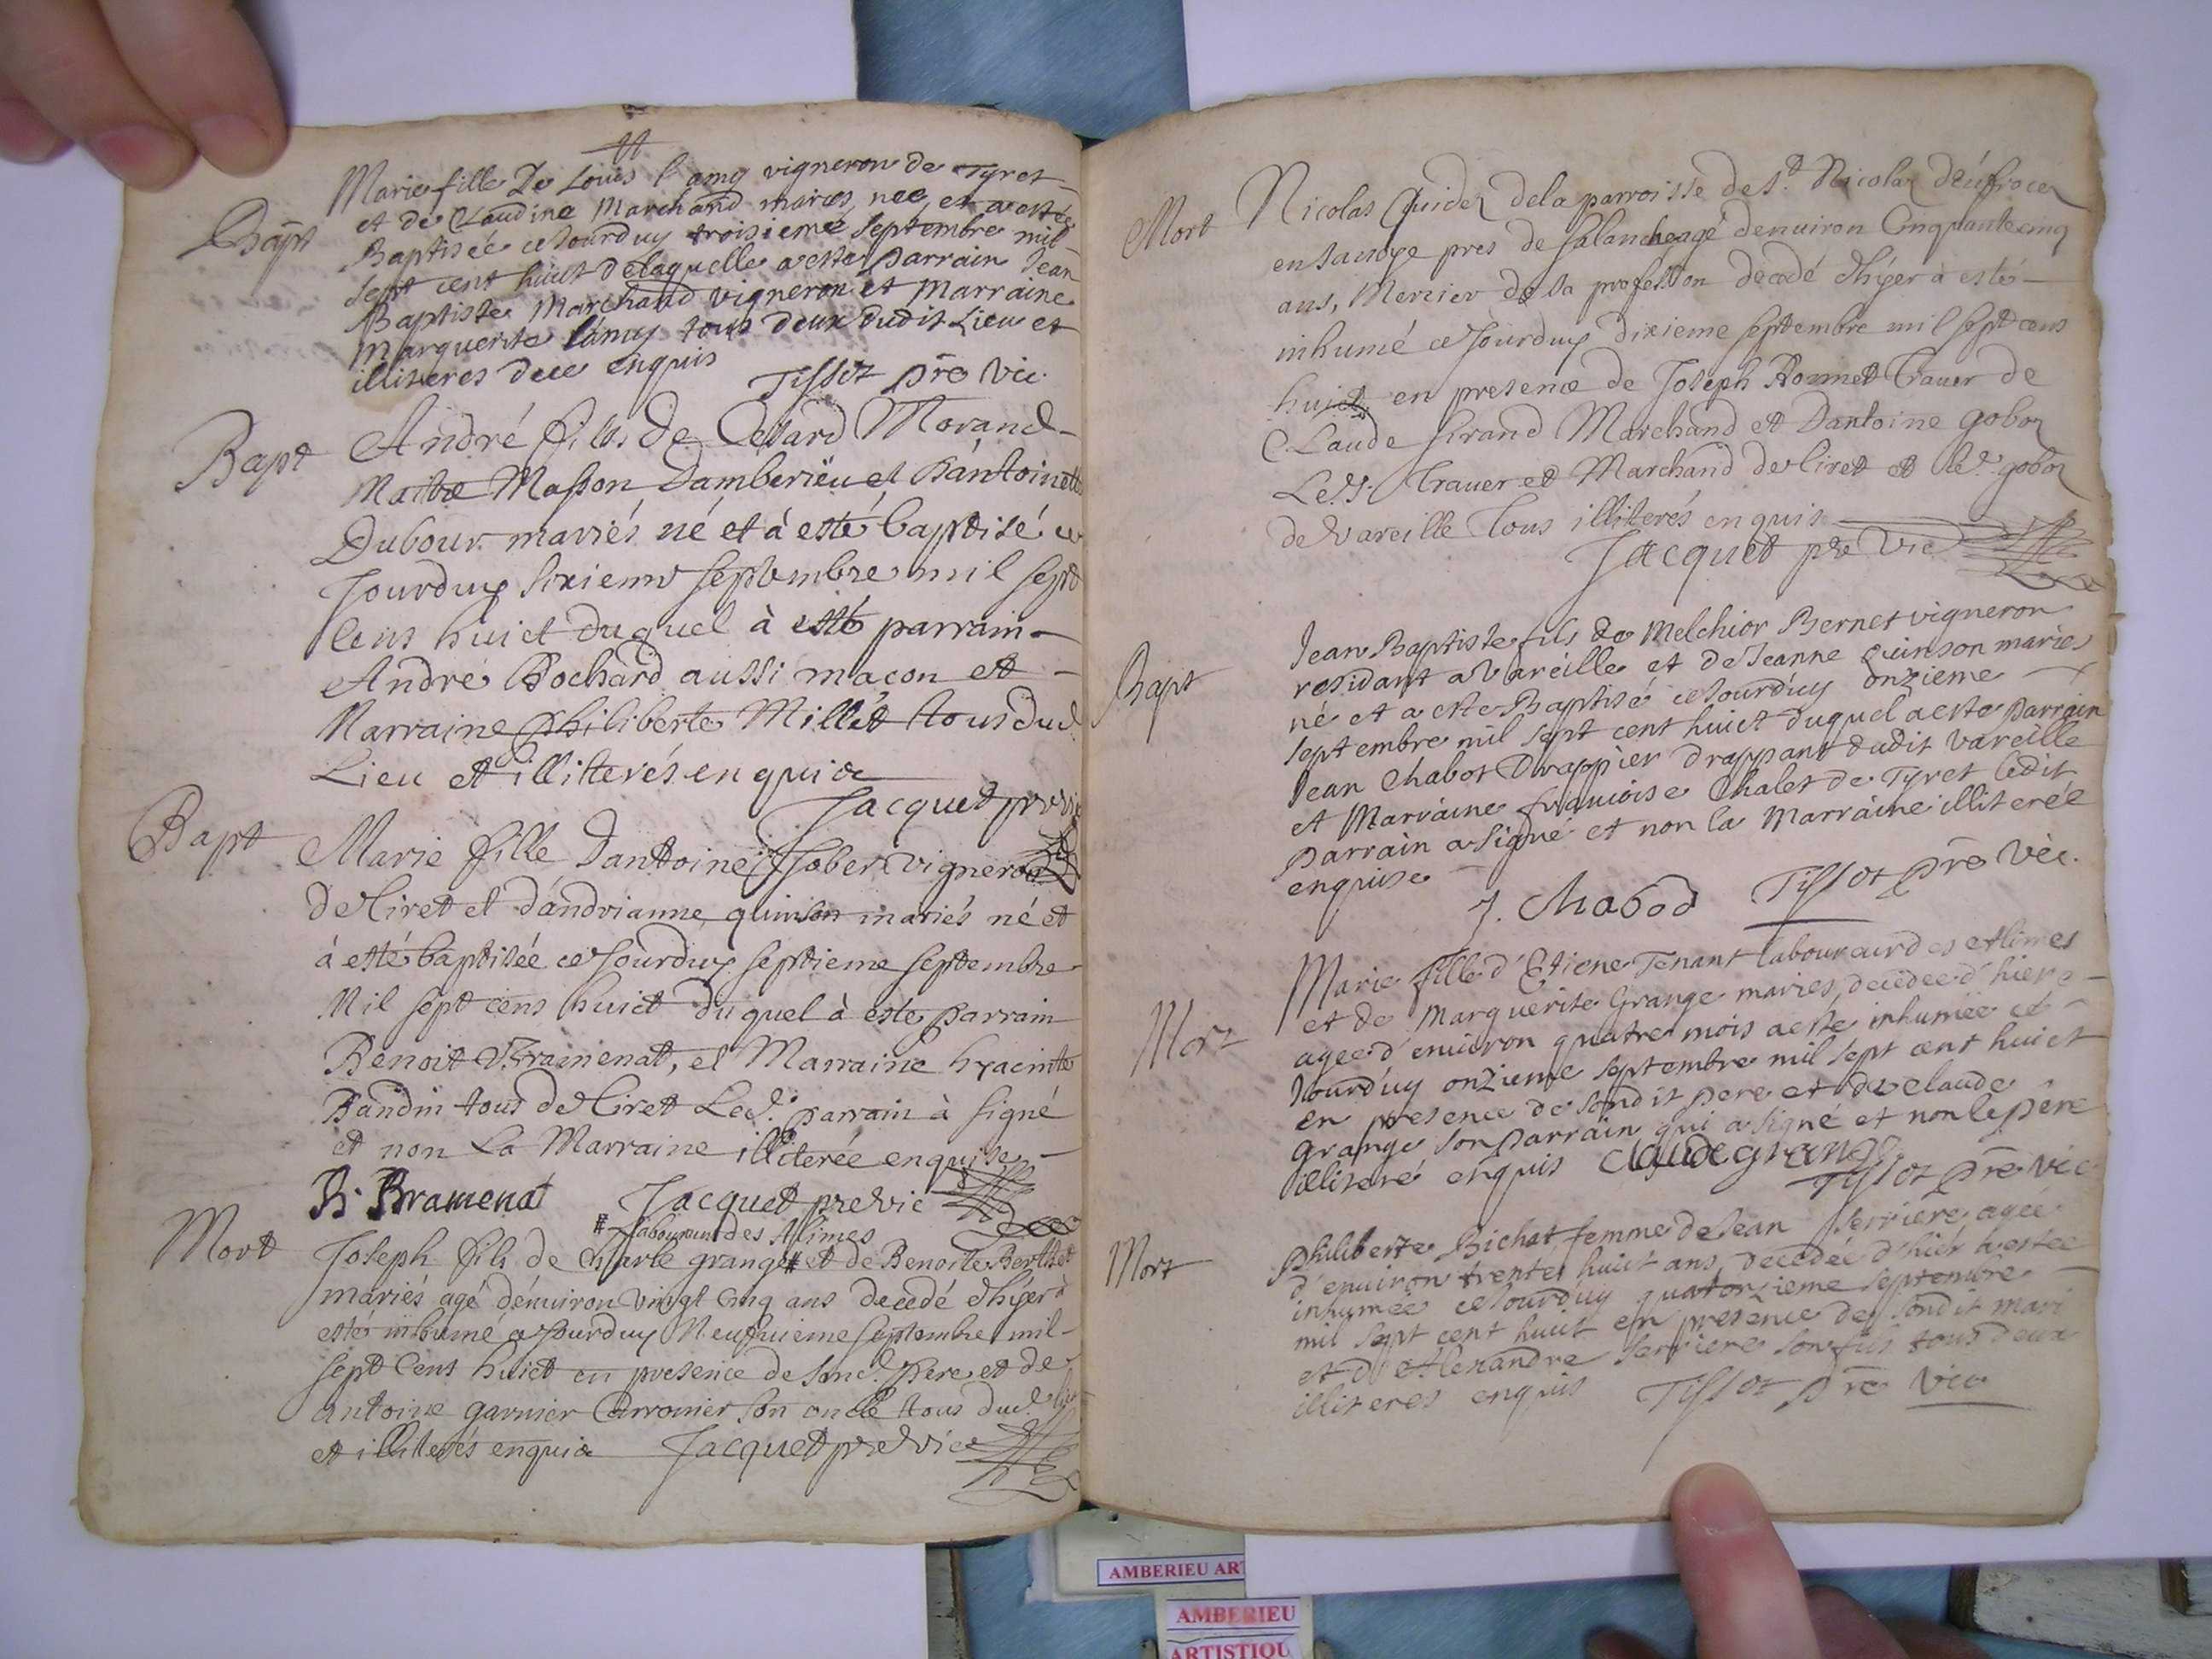 Bapt
Marie fille De Louis Lamy vigneron de Tyret
et de Claudine Marchand mariés, née, et a esté
Baptisée ce Jourduy troisieme septembre mil
sept cent huict de laquelle a esté parrain Jean
Baptiste Marchand vigneron et Marraine
Marguerite Lamy tous deux dudit Lieu et
illiteres de ce enquis
Tissot pre vic.
Bapt
André fils de Cesard Morand
Maitre Masson Damberieu et Dantoinette
Dubour mariés né et à esté baptisé ce
Jourduy sixieme septembre mil sept
Cens huict duquel à esté parrain
André Bochard aussi macon et
Marraine philiberte Millet tous dud.
Lieu et illitterés enquis
Jacquet pre vic
Bapt
Marie fille Dantoine vigneron
de Tiret et dandrianne quinson mariés né et
à esté baptisée ce Jourduy septieme septembre
Mil sept cens huict duquel à esté parrain
Benoit Bramenat, et Marraine hyacinte
Bandin tous de Tiret Led. parrain à signé
et non La Marraine illiterée enquise
B. Bramenat Jacquet pre vic
Mort
# Laboureur des Alimes
Joseph fils de Charle grange # et de Benoite Berthet
mariés agé d'énuiron vingt cinq ans decedé d'hyer à
esté inhumé ce Jourduy Neufuieme septembre mil
sept Cens huict en presence de sond. pere et de
antoine garnier son oncle tous dud. lieu
et illiterés enquis Jacquet pre vic
Mort
Nicolas de la parroisse de St. Nicolas
en sauoye pres de Salanche agé denuiron Cinquante cinq
ans, Mercier de sa profession decedé d'hyer à esté
inhumé ce Jourduy dixieme septembre mil sept cens
huict en presence de Joseph Bonnet Trauer de
Claude Sirand Marchand et Dantoine gobon
Les. Trauer et Marchand de Tiret et le d. gobon
de Vareille Tous illiterés enquis
Jacquet pre vic
Bapt
Jean Baptiste fils de Melchior Bernet vigneron
residant a Vareille et de Jeanne quinson mariés
né et a esté Baptisé ce Jourd'uy onzieme
septembre mil sept cent huict duquel a esté parrain
Jean Chabot Drappier drappant dudit Vareille
et Marraine francoise Chalet de Tyret Ledit
parrain a signé et non la Marraine illiterée
enquise
J. Chabod Tissot pre vic.
Mort
Marie fille d'Etiene Tenant laboureur des Alimes
et de Marguerite Grange mariés, decedee d'hier
agee d'enuiron quatre mois a esté inhumée ce
Jourd'uy onzieme septembre mil sept cent huict
en presence de sondit pere et de Claude
Grange son parrain qui a signé et non le pere
illiteré enquis Claude grange
Tissot pre vic
Mort
Philiberte Bichat femme de Jean Serriere, agée
d'enuiron trente huict ans, decedée d'hier a estée
inhumée ce Jourd'uy quatorzieme septembre
mil sept cent huict en presence de sondit mari
et d'Alexandre Serriere son fils tous deux
illiteres enquis Tissot pre vic
AMBERIEU AR
AMBERIEU
ARTISTIQU